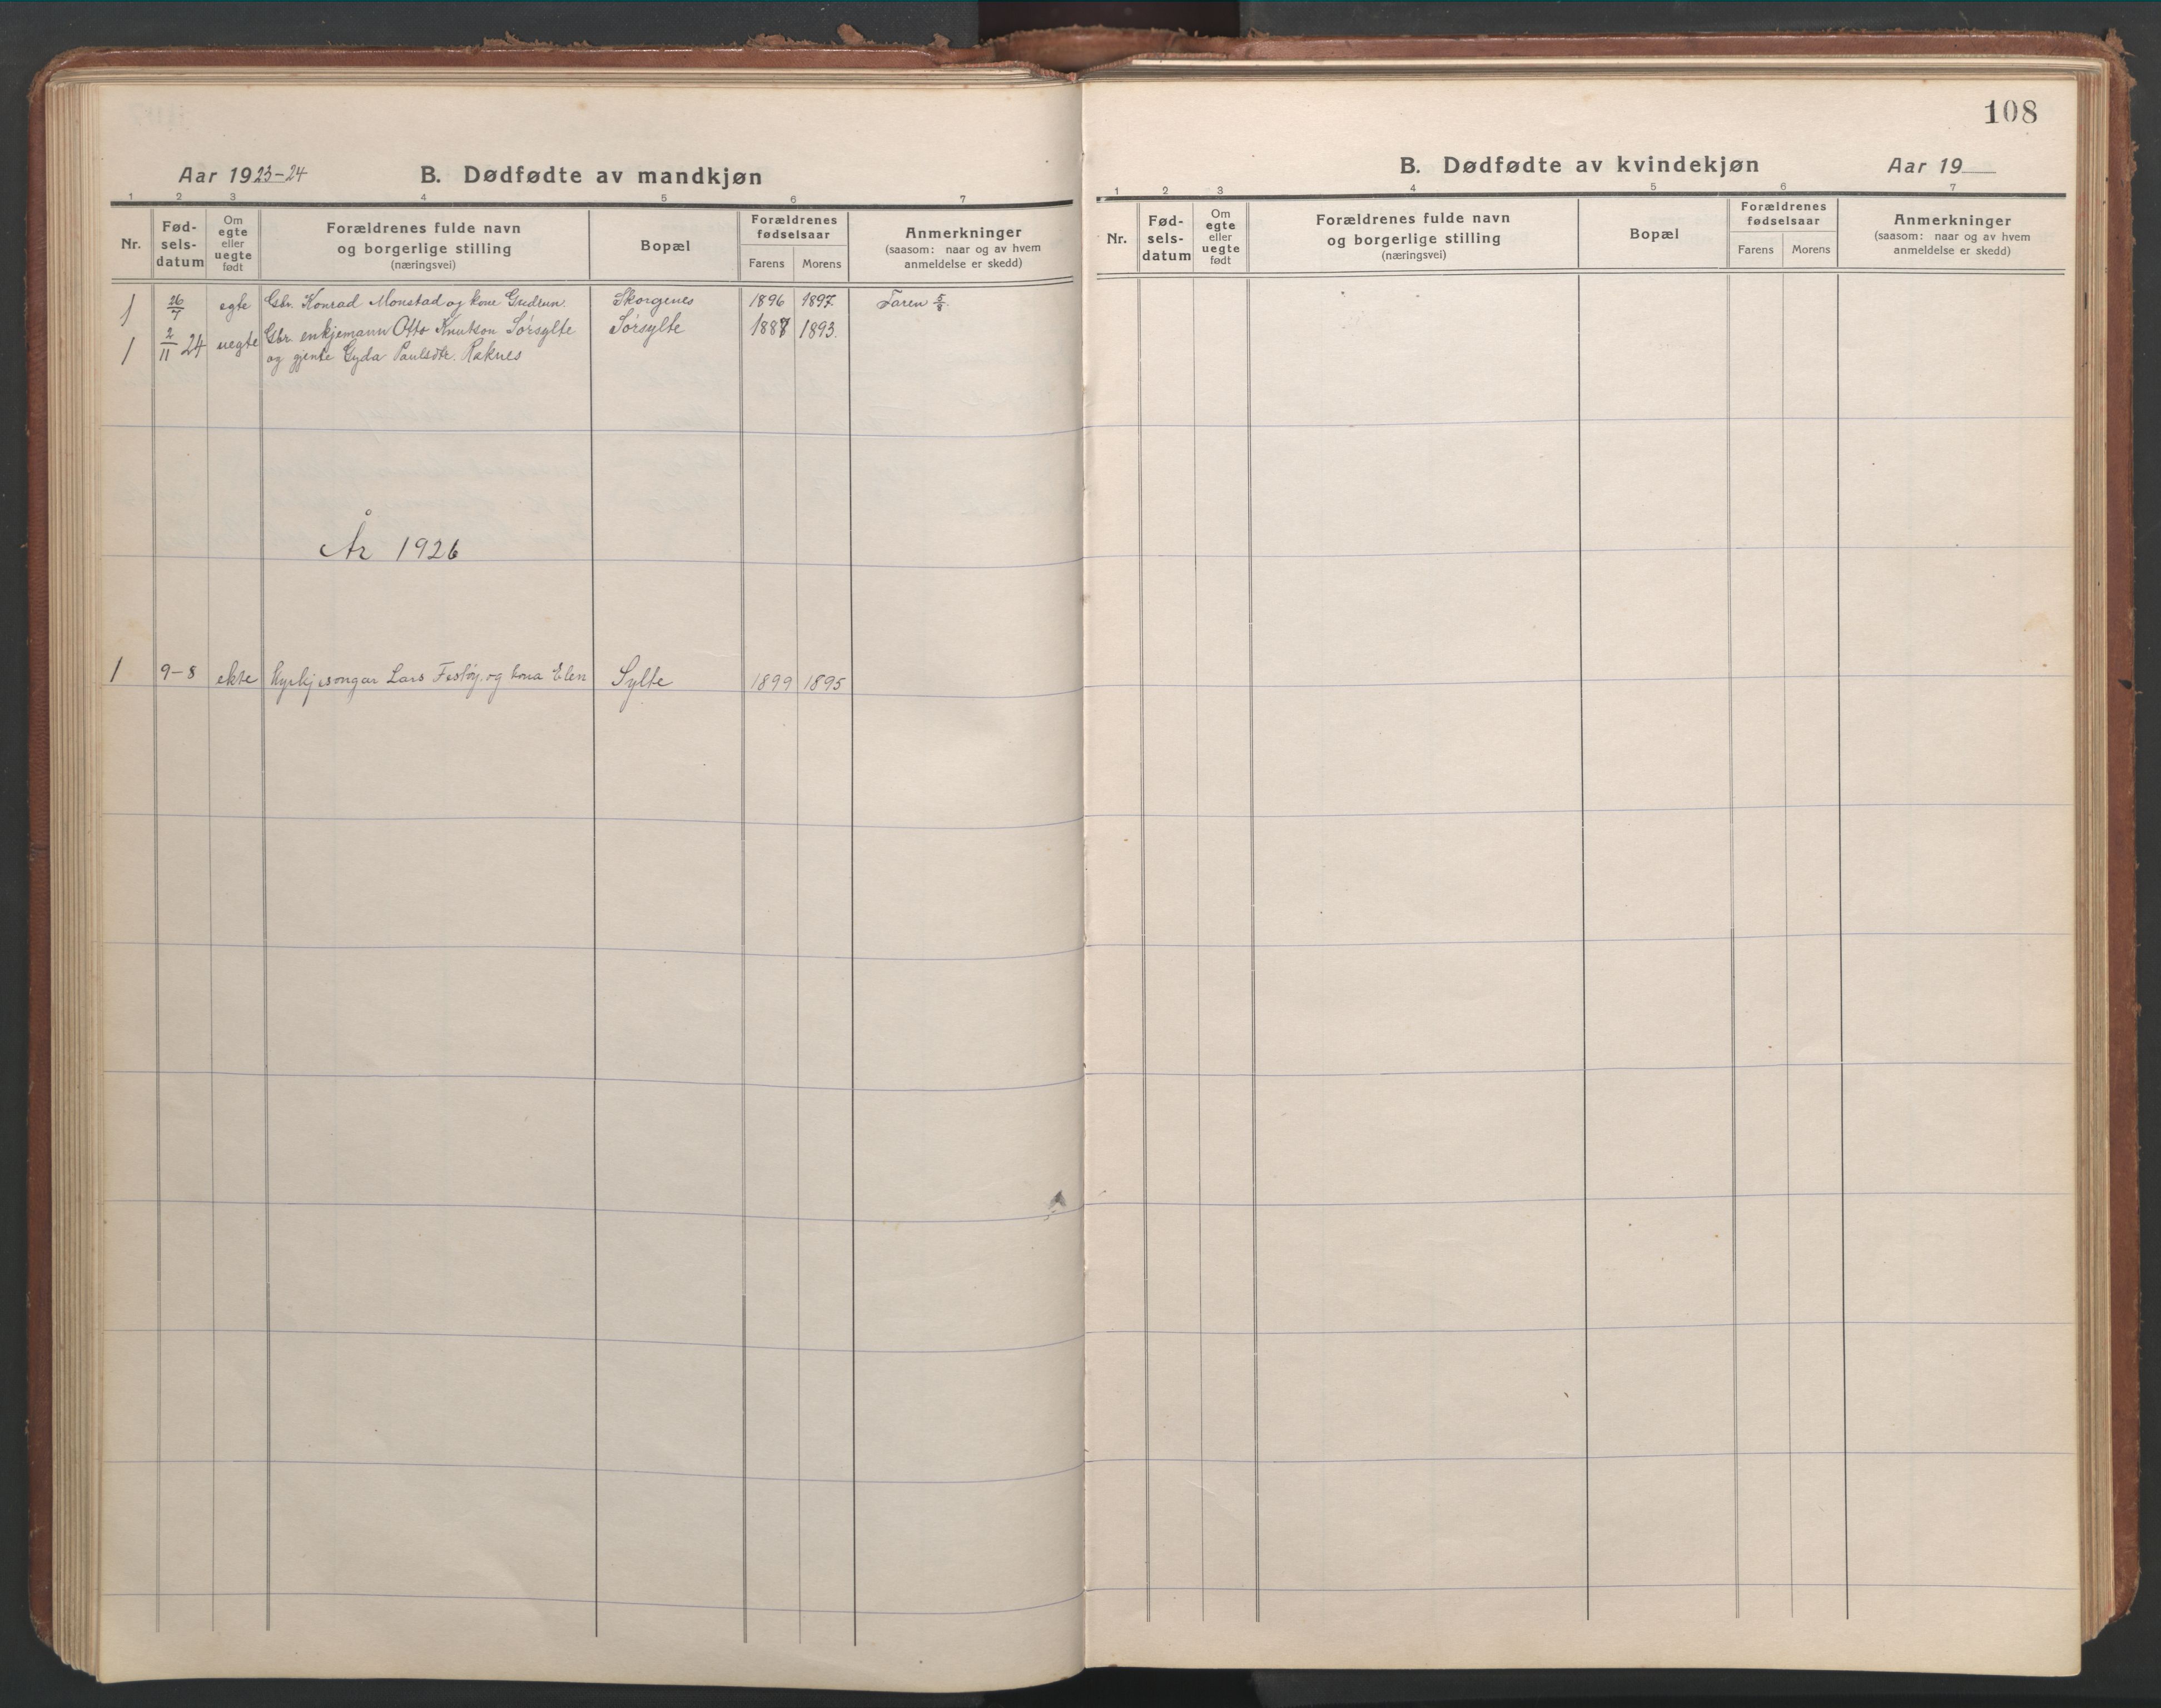 108
Aar 1923-24 B. Dødfødte av mandkjøn
1 2 3 4 5 6 7
Nr.
Fød-
sels-
datum
Om
egte
eller
uegte
født
Forældrenes fulde navn
og borgerlige stilling
(næringsvei)
Bopæl
Forældrenes
fødselsaar
Farens Morens
Anmerkninger
(saasom: naar og av hvem
anmeldelse er skedd)
1 26/7 egte Gbr. Konrad Monstad og kone Gudrun. Skorgenes 1896 1897 Faren 5/8.
1 2/11 24 uegte Gbr. enkjemann Otto Knutson Sørsylte Sørsylte 1887 1893.
og gjente Gyda Paulsdtr. Raknes
År 1926
1 9-8 ekte Kyrkjesongar Lars Festøy og kona Elen Sylte 1899 1895
B. Dødfødte av kvindekjøn Aar 19
1 2 3 4 5 6 7
Nr.
Fød-
sels-
datum
Om
egte
eller
uegte
født
Forældrenes fulde navn
og borgerlige stilling
(næringsvei)
Bopæl
Forældrenes
fødselsaar
Farens Morens
Anmerkninger
(saasom: naar og av hvem
anmeldelse er skedd)